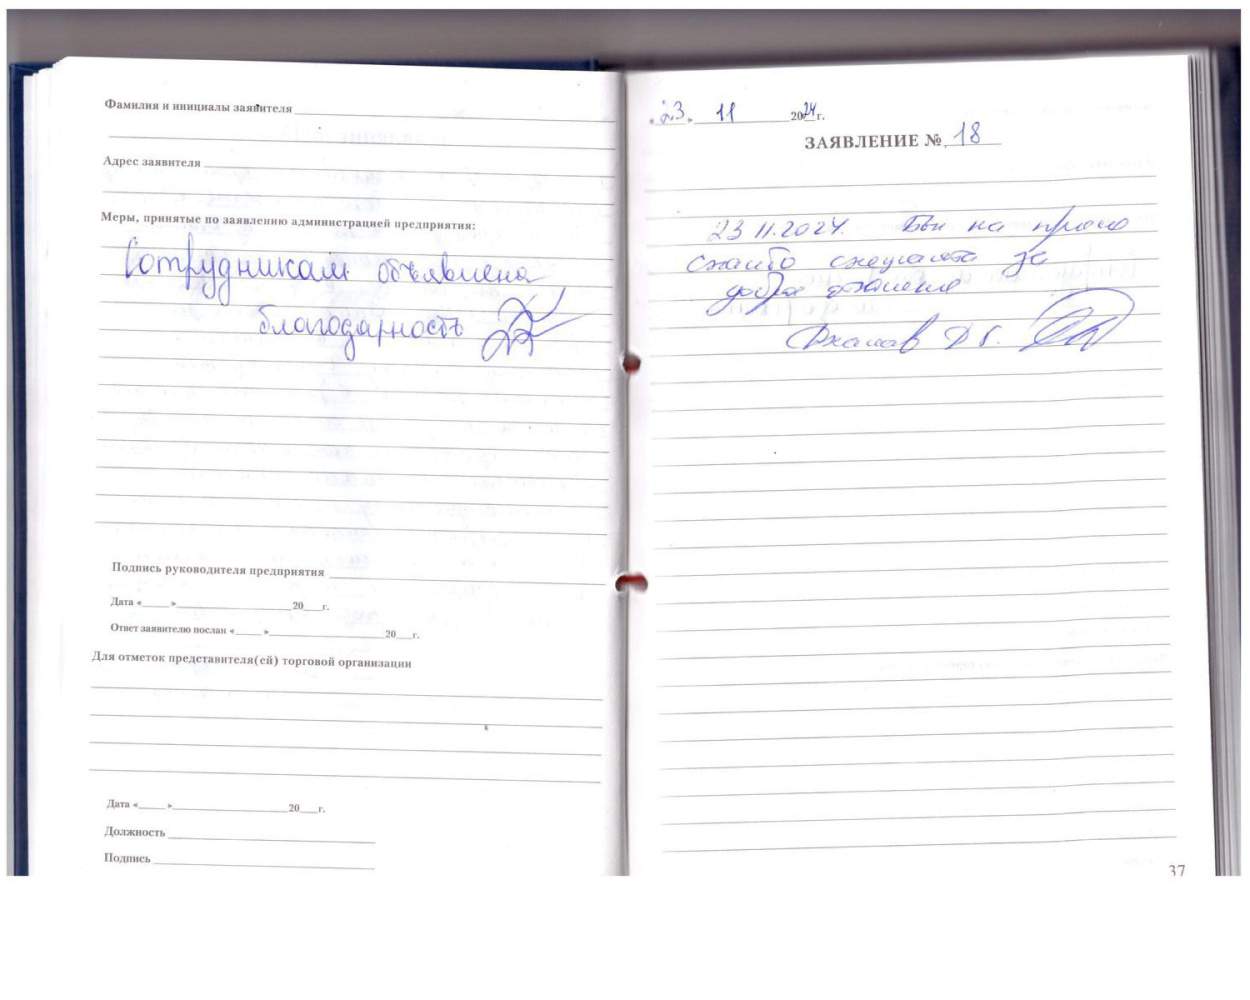 Фамилия и инициалы заявителя
Адрес заявителя
Меры, принятые по заявлению администрацией предприятия:
Сотрудникам объявлена
благодарность
Подпись руководителя предприятия
Дата «____» ____ 20__г.
Ответ заявителю послан «____» ____ 20__г.
Для отметок представителя(ей) торговой организации
Дата «____» ____ 20__г.
Должность
Подпись
«23» 11 2024г.
ЗАЯВЛЕНИЕ № 18
23.11.2024. на
за
37